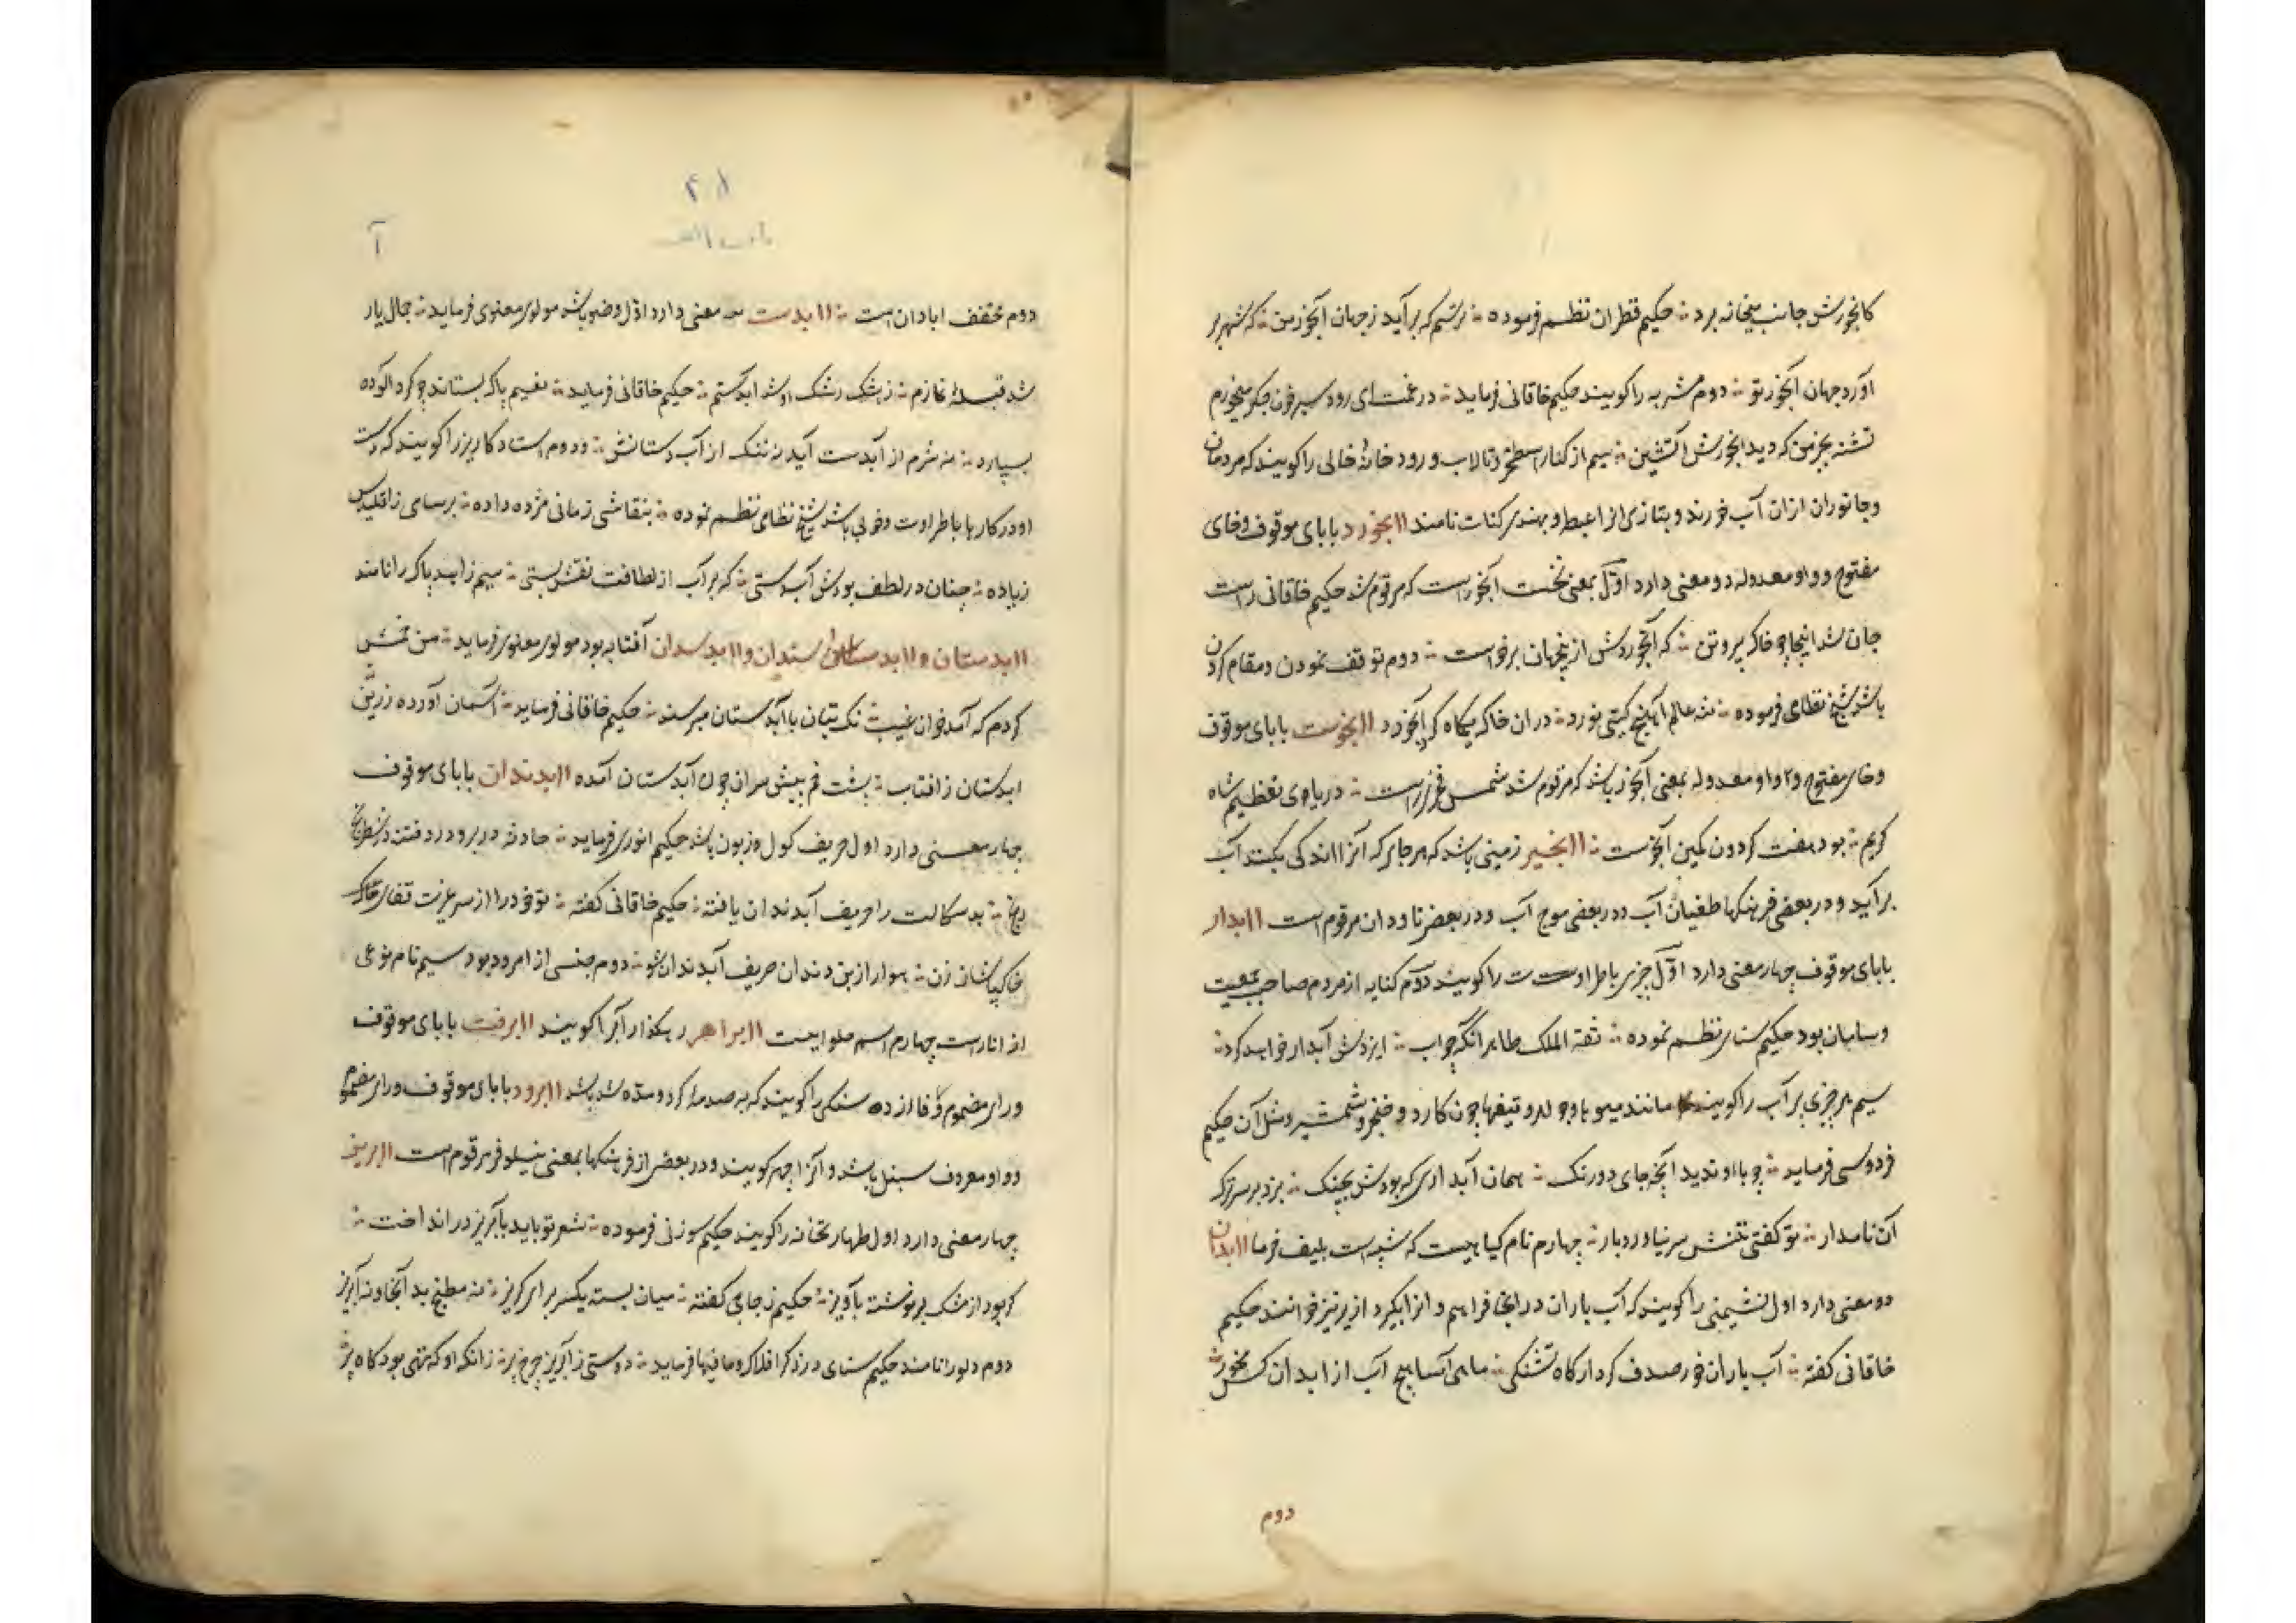 کابخورش جانب میخانه برد ؞ حکیم قطران نظم فرموده ؞ نرستم که برآید زجهان آبخورمن ؞ که شهر بر
آورد جهان آبخور تو ؞ دوم مشربه را کویند حکیم خاقانی فرماید ؞ در غمت ای رود سیر خون جکر میخورم
تشنه بجز من که دید ابخورش آتشین ؞ سیم از کنار اسطخر و تالاب و رود خانهٔ خالی را کویند که مردمان
و جانوران ازان آب خورند و بتازی انرا عبط و بهندی کنات نامند اابخورد با بای موقوف و خای
مفتوح و واو معدوله دو معنی دارد اوّل بمعنی نخست ابخور است که مرقوم شد حکیم خاقانی راست
جان شد اینجا چو خاک بیرو تن ؞ که آبخوردش از جهان برخواست ؞ دوم توقف نمودن و مقام کردن
باشد شیخ نظامی فرموده ؞ شه عالم آهنج کیتی نورد ؞ دران خاک یکماه کرد آبخورد اابخوست با بای موقوف
و خای مفتوح و واو معدوله بمعنی آبخور باشد که مرقوم شد شمس فخری راست ؞ دریای تعظیم شاه
کریم ؞ بود هفت کردون کمین آبخوست ؞ اابخیر زمینی باشد که هرجای که آنرا اندکی بکنند آب
برآید و در بعضی فرهنکها طغیان آب و در بعضی موج آب و در بعضی ناودان مرقوم است اابدار
با بای موقوف چهار معنی دارد اوّل چیزی باطراوت را کویند دوّم کنایه از مردم صاحب جمعیت
و سامان بود حکیم سنای نظم نموده ؞ ثقة الملک طاهر آنکه چو آب ؞ ایزدش آبدار خواهد کرد ؞
سیم هر چیزی پر آب را کویند مانند میوها و جواهر و تیغها چون کارد و خنجر و شمشیر و مثل آن حکیم
فردوسی فرماید ؞ چو با او ندید آبخه جای درنک ؞ همان آبداری که بودش بچنک ؞ بزد بر سر ترک
آن نامدار ؞ تو کفتی تنش سر نیاورد بار ؞ چهارم نام کیاهیست که شبیه است بلیف خرما اابدان
دو معنی دارد اول نشیمنی را کویند که آب باران در انجا فراهم و انرا آبکیر و ازیر نیز خوانند حکیم
خاقانی کفته ؞ آب باران خور صدف کردار کاه تشنکی ؞ ماهی آسا هیچ آب از ابدان کس مخور
دوم
۴۱
باب الف
آ
دوم مخفف ابادان است ؞ اابدست سه معنی دارد اوّل وضو باشد مولوی معنوی فرماید ؞ جمال یار
شد قبلهٔ نمازم ؞ ز اشک رشک او شد ابدستم ؞ حکیم خاقانی فرماید ؞ نقیم پاک بستاند چو کرد الوده
بسپارد ؞ نه شرم از آبدست آید نه ننک از آب دستانش ؞ و دوم استاد کاریز را کویند که دست
او در کارها باطراوت و خوبی باشد شیخ نظامی نظم نموده ؞ بنقاشی زمانی مژده داده ؞ برسامی ز اقلیدس
زیاده ؞ چنان در لطف بودش آبدستی ؞ که بر آب از لطافت نقش بستی ؞ سیم زاهد پاک را نامند
اابدستان و اابدستدان و اابدسدان آفتابه بود مولوی معنوی فرماید ؞ من خمش
کردم که آمد خوان غیب ؞ نک بتان با آبدستان میرسند ؞ حکیم خاقانی فرماید ؞ آسمان آورده زرین
ابدستان ز افتاب ؞ پشت خم پیش سران چون آبدستان آمده اابدندان با بای موقوف
چهار معنی دارد اول حریف کول و زبون باشد حکیم انوری فرماید ؞ حادثه در برد و فتنه در شطرنج
رنج ؞ بدسکالت را حریف آبدندان یافته ؞ حکیم خاقانی کفته ؞ تو خود را از سر عزت قفای خاک
خاکپاشان زن ؞ هوا را از بن دندان حریف آبدندان شو ؞ دوم جنسی از امرود بود سیم نام نوعی
از انار است چهارم اسم حلوایست اابراهر رهکذار آب را کویند اابرفت با بای موقوف
و رای مضموم و فا زده سنکی را کویند که به صدمه کرد و سوده شده باشد اابرود با بای موقوف و رای مضموم
و واو معروف سنبل باشد و آنرا چهر کویند و در بعضی از فرهنکها بمعنی نیلوفر مرقوم است اابریز
چهار معنی دارد اول طهارتخانه را کویند حکیم سوزنی فرموده ؞ شعر تو باید بابریز در انداخت ؞
کر بود از مشک بر نوشته بآویز ؞ حکیم زجاجی کفته ؞ میان بسته یکسر برای کریز ؞ نه مطبخ بد آنجا و نه آبریز
دوم دلو را نامند حکیم سنای در ذکر افلاک و مافیها فرماید ؞ دوستی ز آبریز چرخ پر ؞ زانکه او که تهی بود کاه پر